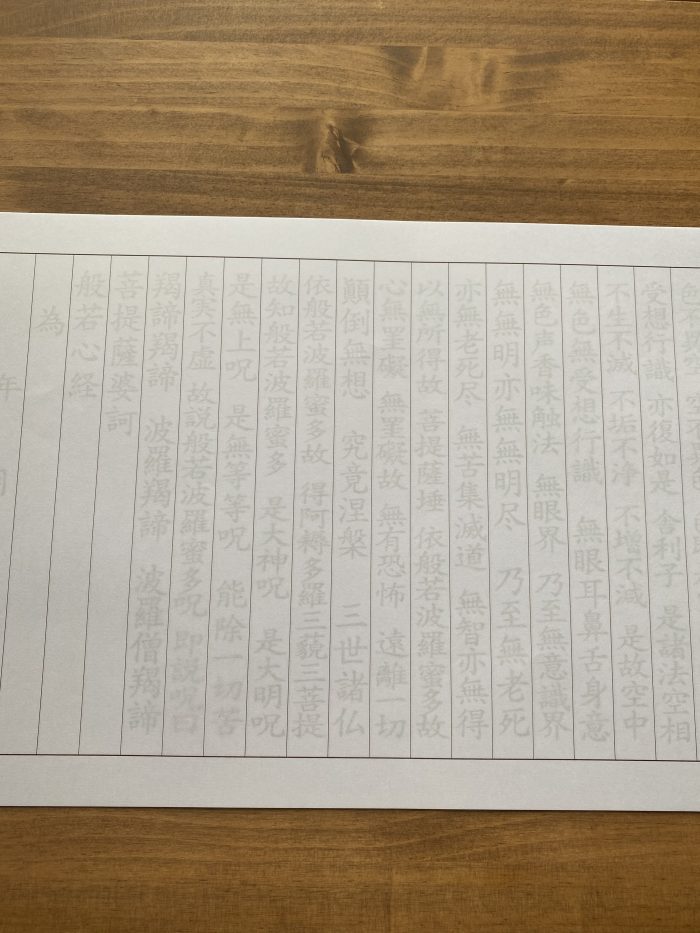 受想行識 亦復如是 舎利子 是諸法空相
不生不滅 不垢不浄 不増不減 是故空中
無色無受想行識 無眼耳鼻舌身意
無色声香味触法 無眼界 乃至無意識界
無無明亦無無明尽 乃至無老死
亦無老死尽 無苦集滅道 無智亦無得
以無所得故 菩提薩埵 依般若波羅蜜多故
心無罣礙 無罣礙故 無有恐怖 遠離一切
顛倒無想 究竟涅槃 三世諸仏
依般若波羅蜜多故 得阿耨多羅三藐三菩提
故知般若波羅蜜多 是大神呪 是大明呪
是無上呪 是無等等呪 能除一切苦
真実不虚 故説般若波羅蜜多呪 即説呪曰
羯諦羯諦 波羅羯諦 波羅僧羯諦
菩提薩婆訶
般若心経
為
年 月